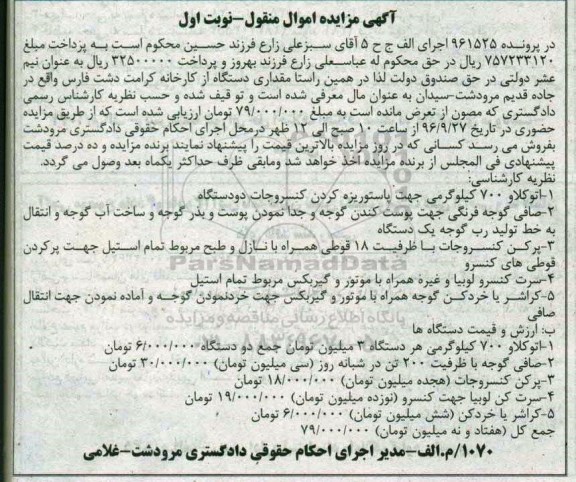 آگهی مزایده اموال منقول-نوبت اول
در پرونده ۹۶۱۵۲۵ اجرای الف ج ح ۵ آقای سبزعلی زارع فرزند حسین محکوم است به پرداخت مبلغ
۷۵۷۲۳۳۱۲۰ ریال در حق محکوم له عباسعلی زارع فرزند بهروز و پرداخت ۳۲۵۰۰۰۰۰ ریال به عنوان نیم
عشر دولتی در حق صندوق دولت لذا در همین راستا مقداری دستگاه از کارخانه کرامت دشت فارس واقع در
جاده قدیم مرودشت-سیدان به عنوان مال معرفی شده است و تو قیف شده و حسب نظریه کارشناس رسمی
دادگستری که مصون از تعرض مانده است به مبلغ ۷۹/۰۰۰/۰۰۰ تومان ارزیابی شده است که از طریق مزایده
حضوری در تاریخ ۹۶/۹/۲۷ از ساعت ۱۰ صبح الی ۱۲ ظهر درمحل اجرای احکام حقوقی دادگستری مرودشت
بفروش می رسد کسانی که در روز مزایده بالاترین قیمت را پیشنهاد نمایند برنده مزایده و ده درصد قیمت
پیشنهادی فی المجلس از برنده مزایده اخذ خواهد شد ومابقی ظرف حداکثر یکماه بعد وصول می گردد.
نظریه کارشناسی:
۱-اتوکلاو ۷۰۰ کیلوگرمی جهت پاستوریزه کردن کنسروجات دودستگاه
۲-صافی گوجه فرنگی جهت پوست کندن گوجه و جدا نمودن پوست و پذر گوجه و ساخت آب گوجه و انتقال
به خط تولید رب گوجه یک دستگاه
۳-پرکن کنسروجات با ظرفیت ۱۸ قوطی همراه با نازل و طبخ مربوط تمام استیل جهت پرکردن
قوطی های کنسرو
۴-سرت کنسرو لوبیا و غیره همراه با موتور و گیربکس مربوط تمام استیل
۵-کراشر یا خردکن گوجه همراه با موتور و گیربکس جهت خردنمودن گوجه و آماده نمودن جهت انتقال
صافی
ب: ارزش و قیمت دستگاه ها
۱-اتوکلاو ۷۰۰ کیلوگرمی هر دستگاه ۳ میلیون تومان جمع دو دستگاه ۶/۰۰۰/۰۰۰ تومان
۲-صافی گوجه با ظرفیت ۲۰۰ تن در شبانه روز (سی میلیون تومان) ۳۰/۰۰۰/۰۰۰ تومان
۳-پرکن کنسروجات (هجده میلیون تومان) ۱۸/۰۰۰/۰۰۰ تومان
۴-سرت کن لوبیا جهت کنسرو (نوزده میلیون تومان) ۱۹/۰۰۰/۰۰۰ تومان
۵-کراشر یا خردکن (شش میلیون تومان) ۶/۰۰۰/۰۰۰ تومان
جمع کل (هفتاد و نه میلیون تومان) ۷۹/۰۰۰/۰۰۰
۱۰۷۰/م.الف-مدیر اجرای احکام حقوقی دادگستری مرودشت-غلامی
ParsNamadData
پایگاه اطلاع رسانی مناقصه و مزایده